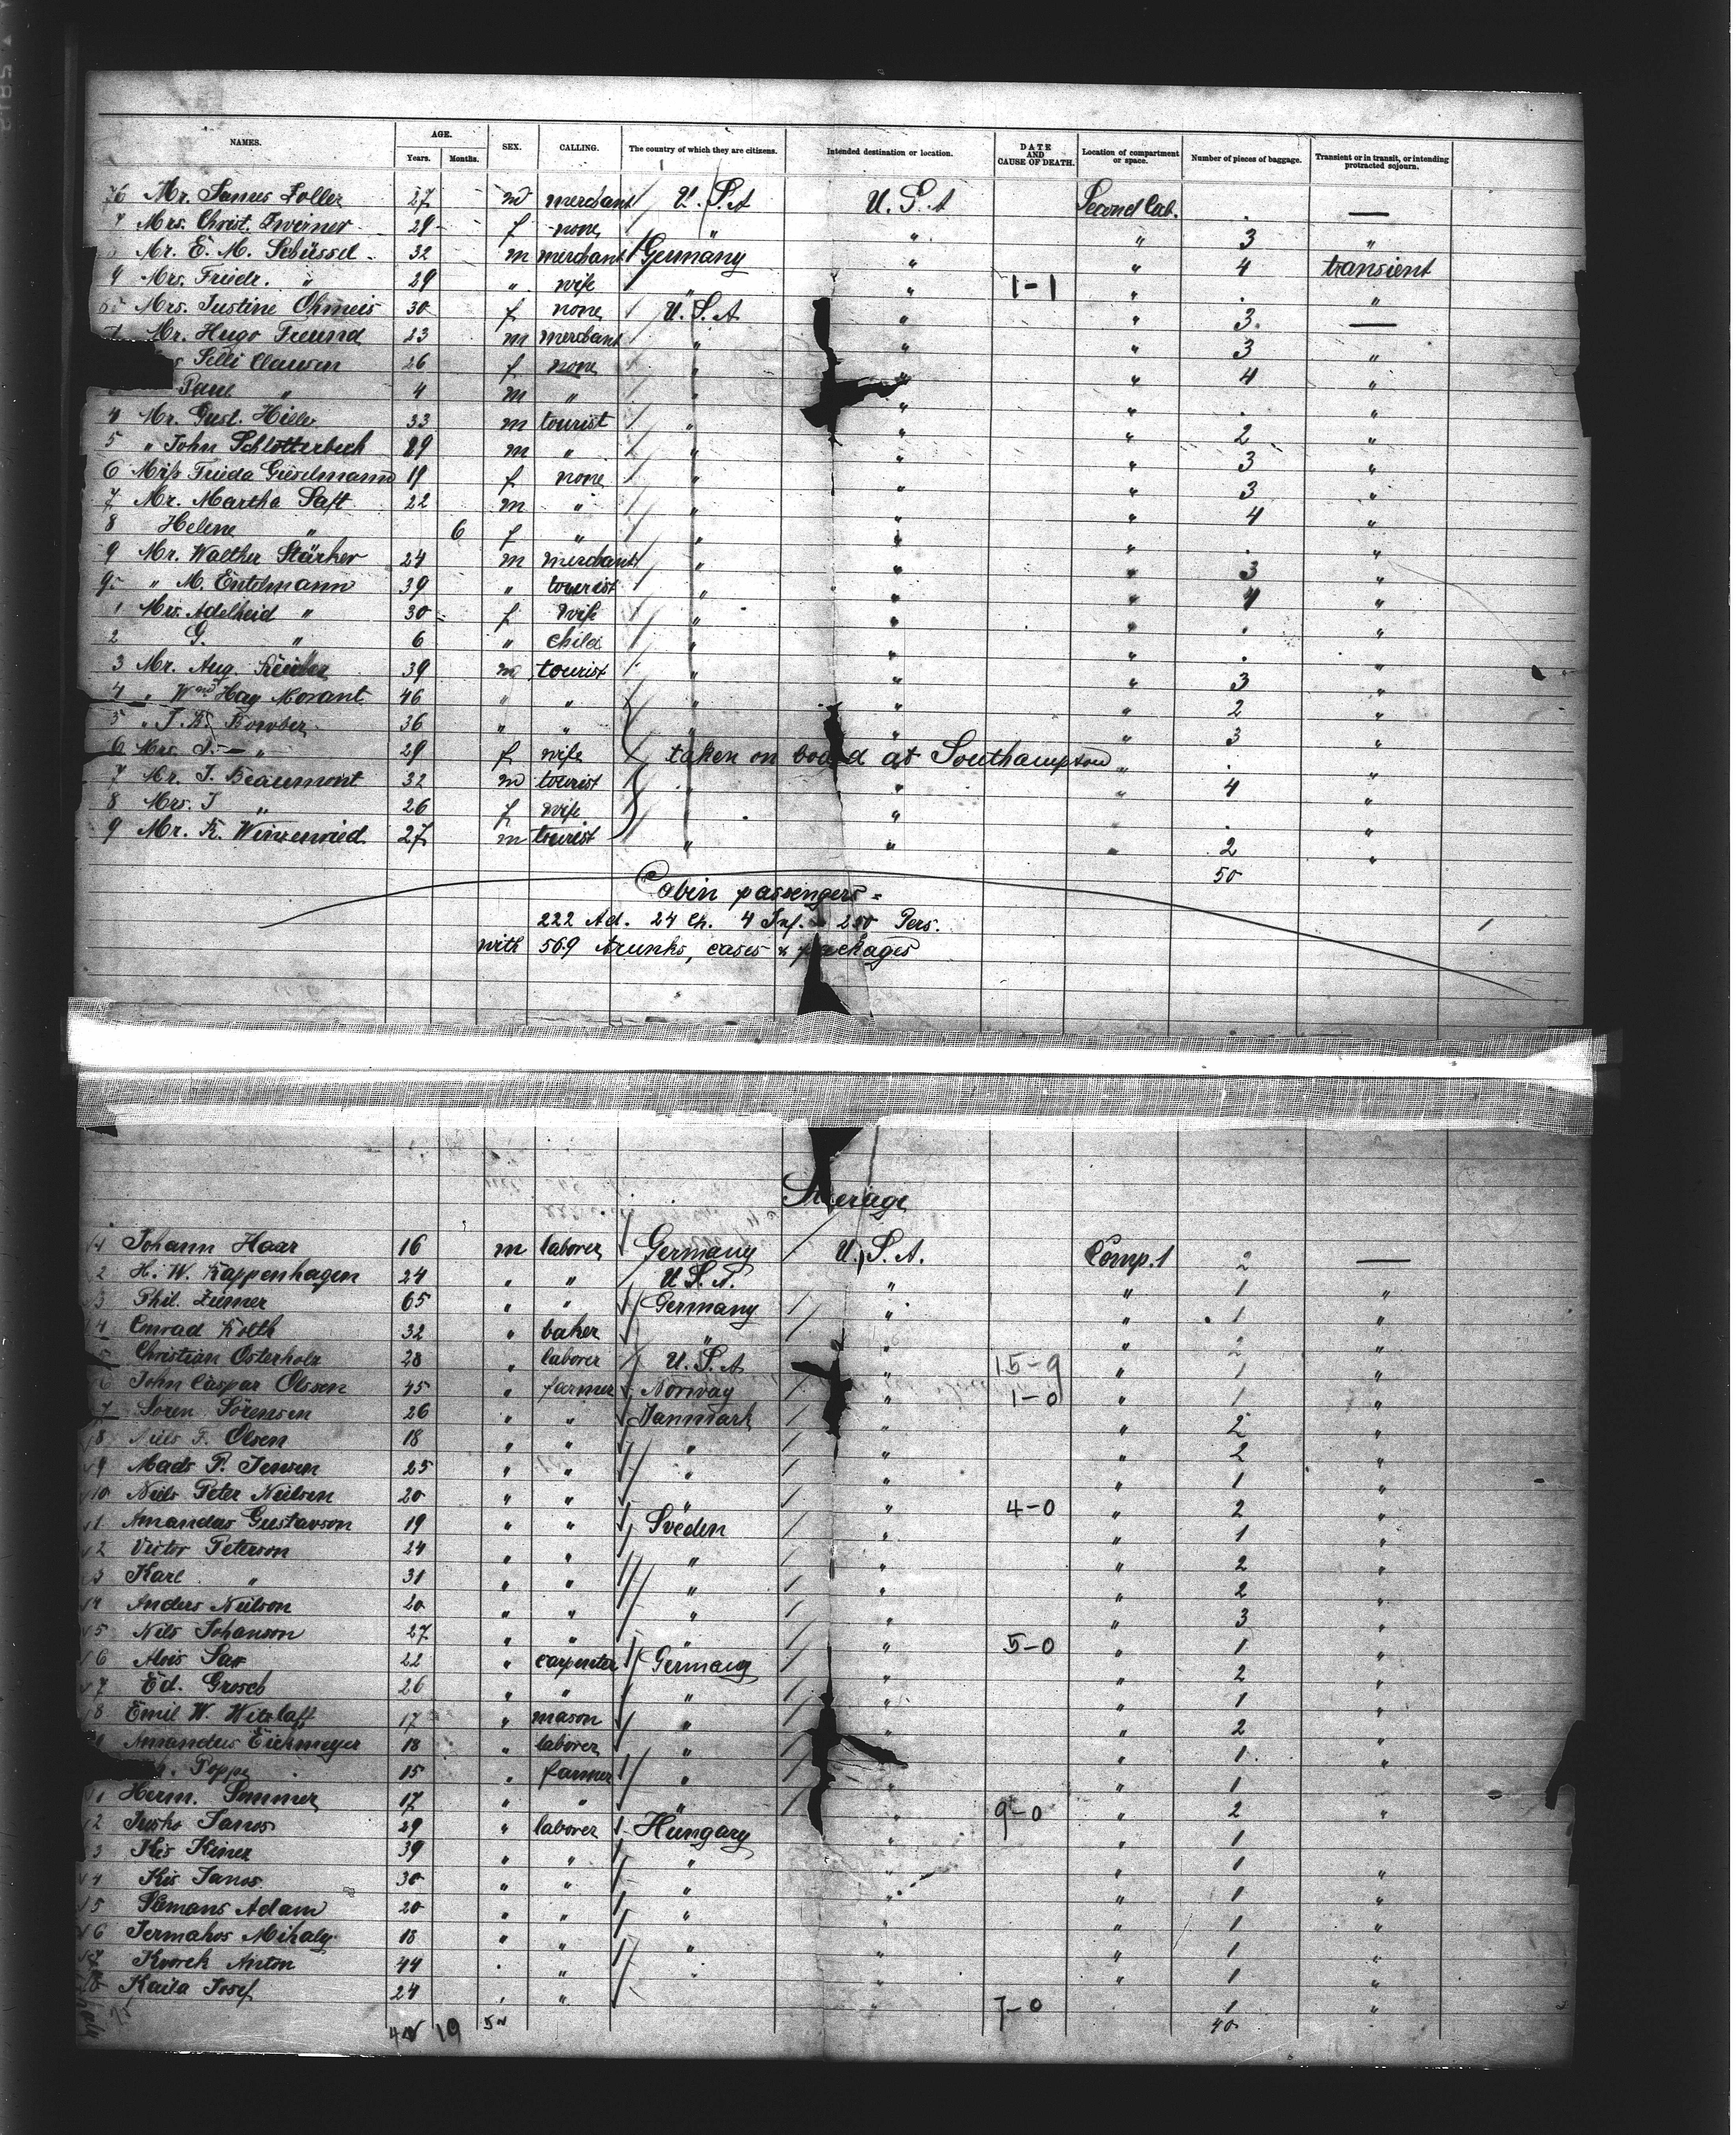 NAMES. AGE. Years. Months. SEX. CALLING. The country of which they are citizens. Intended destination or location. DATE AND CAUSE OF DEATH. Location of compartment or space. Number of pieces of baggage. Transient or in transit, or intending protracted sojourn.
76 Mr. James Zoller 27 m merchant U.S.A U.S.A Second Cab. . —
7 Mrs. Christ. Zwerner 29 f none " " " 3 "
Mr. E. M. Schüssel 32 m merchant Germany " " 4 transient
9 Mrs. Friedr. " 29 " wife " " 1-1 " . "
Mrs. Justine Ohmeis 30 f none U.S.A " " 3 —
Mr. Hugo Freund 23 m merchant " " " 3 "
Clausen 26 f none " " " 4 "
Paul " 4 m " " " " . "
4 Mr. Gust. Hiller 33 m tourist " " " 2 "
5 " John Schlotterbeck 29 m " " " " 3 "
6 Miss Frieda Gieselmann 19 f none " " " 3 "
7 Mr. Martha Saft 22 m " " " " 4 "
8 Helene " 6 f " " " " . "
9 Mr. Walther Stärker 24 m merchant " " " 3 "
90 " M. Entelmann 39 " tourist " " " 4 "
1 Mrs. Adelheid " 30 f wife " " " . "
2 G. " 6 " child " " " . "
3 Mr. Aug. 39 m tourist " " " 3 "
4 " Wm Hay Morant 46 " " " " " 2 "
5 " J. K. Bowber 36 " " " " 3 "
6 Mrs. J. " 29 f wife taken on board at Southampton " . "
7 Mr. J. Beaumont 32 m tourist " " " 4 "
8 Mrs. J " 26 f wife . " . "
9 Mr. K. 27 m tourist " " " 2 "
50
Cabin passengers =
222 Ad. 24 Ch. 4 Inf. = 250 Pers.
with 569 trunks, cases & packages
Steerage
1 Johann Haar 16 m laborer Germany U.S.A. Comp. 1 2 —
2 H. W. Kappenhagen 24 " " U.S.A. " " 1 "
3 Phil. Ziemer 65 " " Germany " " 1 "
4 Conrad Kolth 32 " baker " " " 2 "
5 Christian Osterholz 28 " laborer U.S.A " 15-9 " 1 "
6 John Caspar Olssen 45 " farmer Norway " 1-0 " 1 "
7 Soren Sörensen 26 " " Danmark " " 2 "
8 Niels F. Olsen 18 " " " " " 2 "
9 Mads P. Jensen 25 " " " " " 1 "
10 Niels Peter Neilsen 20 " " " " 4-0 " 2 "
1 Amandus Gustavson 19 " " Sveden " " 1 "
2 Victor Peterson 24 " " " " " 2 "
3 Karl " 31 " " " " " 2 "
4 Anders Neilson 20 " " " " " 3 "
5 Nils Johanson 27 " " " " 5-0 " 1 "
6 Alois Sax 22 " carpenter Germany " " 2 "
7 Ed. Grosch 26 " " " " " 1 "
8 Emil W. Witzlaff 17 " mason " " " 2 "
9 Amandus Eickmeyer 18 " laborer " " " 1 "
Poppe 15 " farmer " " " 1 "
1 Herm. Sommer 17 " " " " 9-0 " 2 "
2 Jusko Janos 29 " laborer Hungary " " 1
3 Kis Kiner 39 " " " " " 1 "
4 Kis Janos 30 " " " " " 1 "
5 Adam 20 " " " " " 1 "
6 Jermakos Mihaly 18 " " " " " 1 "
7 Kvorek Anton 44 " " " " " 1 "
8 Kaila Josef 24 " " " 7-0 1 "
19 40